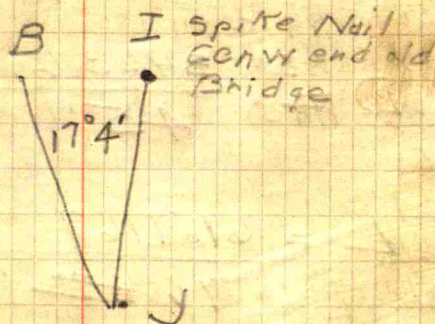 B I Spike Nail
Cen W end old
Bridge
17°4'
y